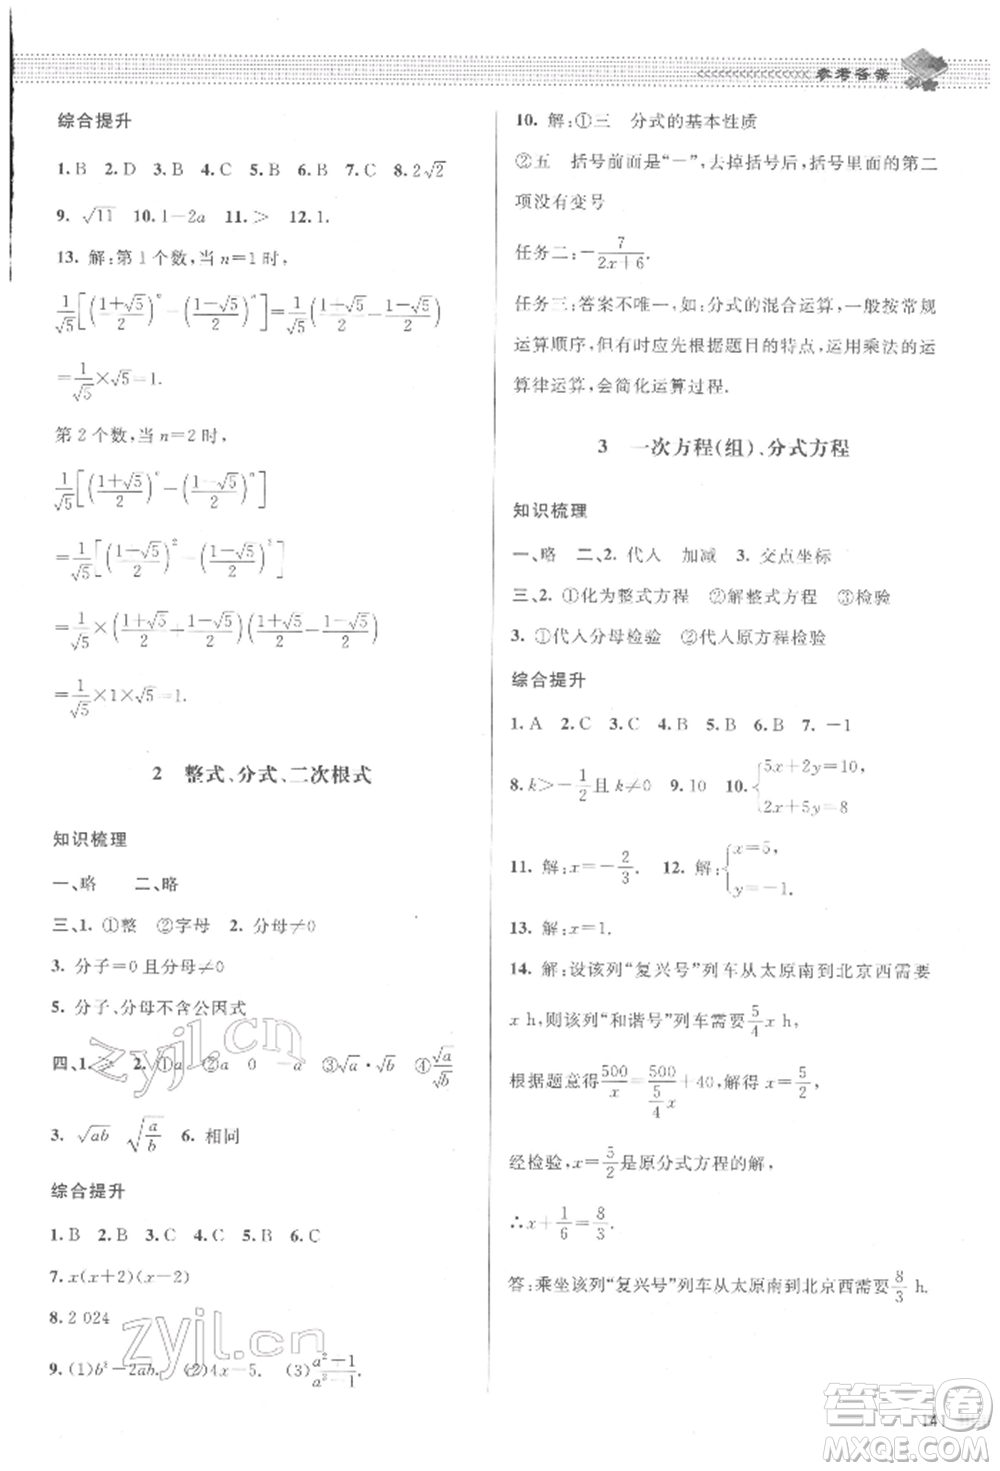 参考答案
综合提升
1. B 2. D 3. B 4. C 5. B 6. B 7. C 8. 2√2
9. √11 10. 1−2a 11. > 12. 1.
13. 解:第 1 个数,当 n=1 时,
1/√5[((1+√5)/2)^n−((1−√5)/2)^n]=1/√5((1+√5)/2−(1−√5)/2)
=1/√5×√5=1.
第 2 个数,当 n=2 时,
1/√5[((1+√5)/2)^n−((1−√5)/2)^n]
=1/√5[((1+√5)/2)^2−((1−√5)/2)^2]
=1/√5×((1+√5)/2+(1−√5)/2)((1+√5)/2−(1−√5)/2)
=1/√5×1×√5=1.
2 整式、分式、二次根式
知识梳理
一、略 二、略
三、1. ①整 ②字母 2. 分母≠0
3. 分子=0 且分母≠0
5. 分子、分母不含公因式
四、1. 2. ①a ②a 0 −a ③√a·√b ④√a/√b
3. √ab √(a/b) 6. 相同
综合提升
1. B 2. B 3. C 4. C 5. B 6. C
7. x(x+2)(x−2)
8. 2 024
9. (1)b²−2ab. (2)4x−5. (3)(a²−1)/(a²−1).
10. 解:①三 分式的基本性质
②五 括号前面是“−”,去掉括号后,括号里面的第二
项没有变号
任务二:−7/(2x+6).
任务三:答案不唯一,如:分式的混合运算,一般按常规
运算顺序,但有时应先根据题目的特点,运用乘法的运
算律运算,会简化运算过程.
3 一次方程(组)、分式方程
知识梳理
一、略 二、2. 代入 加减 3. 交点坐标
三、2. ①化为整式方程 ②解整式方程 ③检验
3. ①代入分母检验 ②代入原方程检验
综合提升
1. A 2. C 3. C 4. B 5. B 6. B 7. −1
8. k>−1/2且 k≠0 9. 10 10. {5x+2y=10, 2x+5y=8
11. 解:x=−2/3. 12. 解:{x=5, y=−1.
13. 解:x=1.
14. 解:设该列“复兴号”列车从太原南到北京西需要
x h,则该列“和谐号”列车需要5/4 x h,
根据题意得500/x=500/(5/4 x)+40,解得 x=5/2,
经检验,x=5/2是原分式方程的解,
∴x+1/6=8/3.
答:乘坐该列“复兴号”列车从太原南到北京西需要8/3 h.
141
zyjl.cn
zyjl.cn
答案圈
MXQE.COM